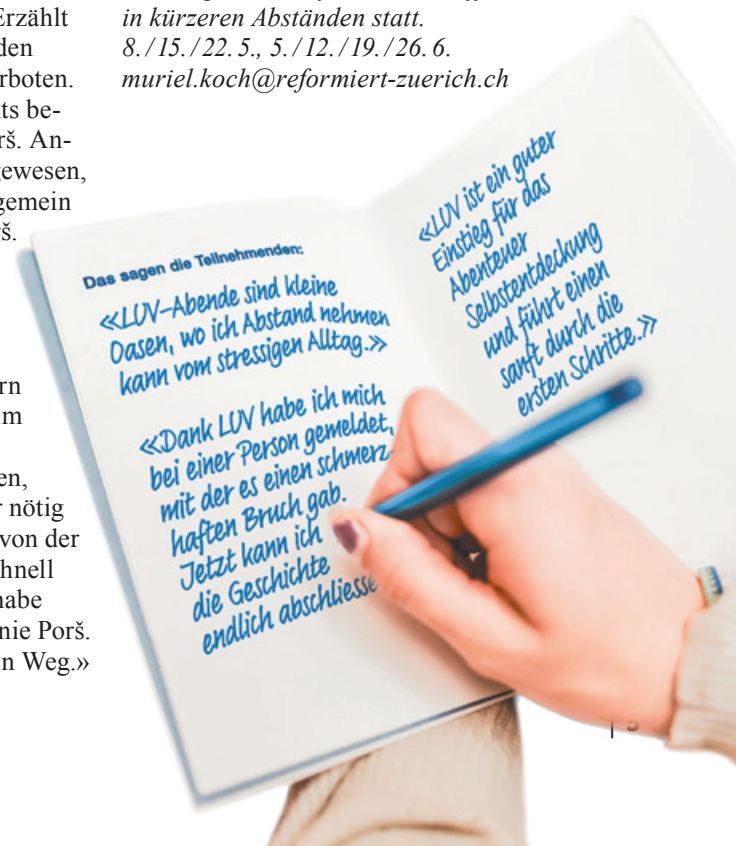 Erzählt
den
rboten.
ts be-
rš. An-
gewesen,
gemein
š.
rn
m
en,
r nötig
von der
hnell
habe
nie Porš.
n Weg.»
in kürzeren Abständen statt.
8./15./22.5., 5./12./19./26.6.
muriel.koch@reformiert-zuerich.ch
Das sagen die Teilnehmenden:
«LUV-Abende sind kleine
Oasen, wo ich Abstand nehmen
kann vom stressigen Alltag.»
«Dank LUV habe ich mich
bei einer Person gemeldet,
mit der es einen schmerz-
haften Bruch gab.
Jetzt kann ich
die Geschichte
endlich abschliesse
«LUV ist ein guter
Einstieg für das
Abenteuer
Selbstentdeckung
und führt einen
sanft durch die
ersten Schritte.»